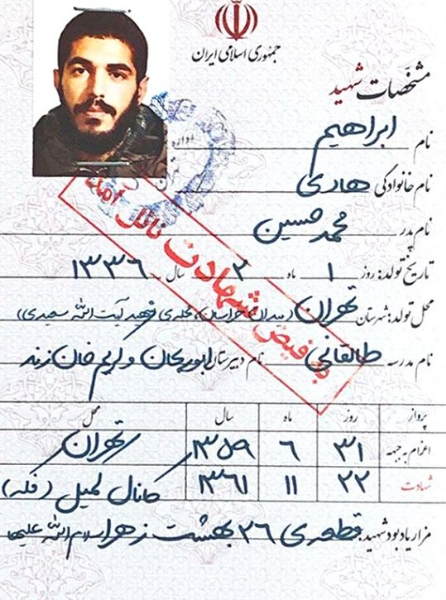 جمهوری اسلامی ایران
مشخصات شهید
نام ابراهیم
نام خانوادگی هادی
نام پدر محمد حسین
تاریخ تولد: روز ۱ ماه ۲ سال ۱۳۳۶
محل تولد: شهرستان تهران (میدان خراسان، محله‌ی شهید آیت الله سعیدی)
نام مدرسه طالقانی نام دبیرستان ابوریحان و کریم خان زند
به فیض شهادت نائل آمد
پرواز روز ماه سال محل
اعزام به جبهه ۳۱ ۶ ۱۳۵۹ تهران
شهادت ۲۲ ۱۱ ۱۳۶۱ کانال کمیل (فکه)
مزار یادبود شهید: قطعه‌ی ۲۶ بهشت زهرا سلام الله علیها